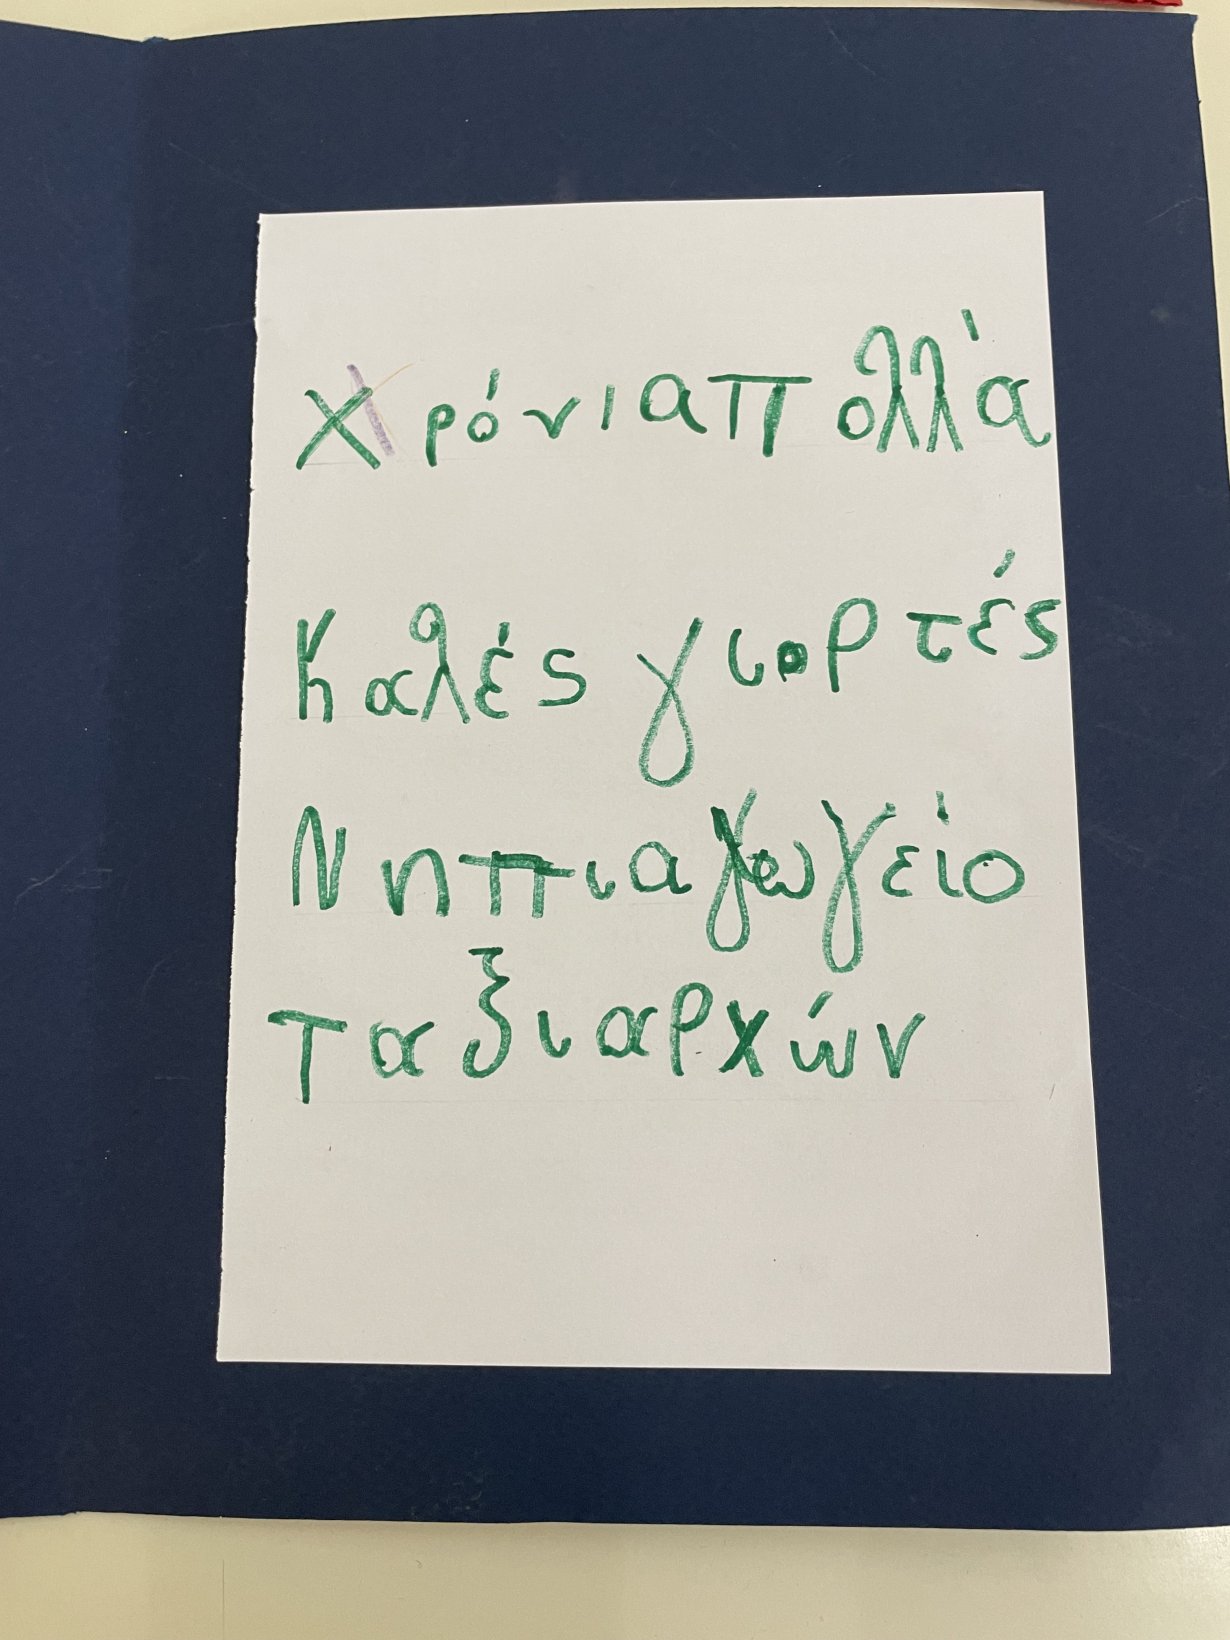 Χρόνια πολλά
Καλές γιορτές
Νηπιαγωγείο
Ταξιαρχών